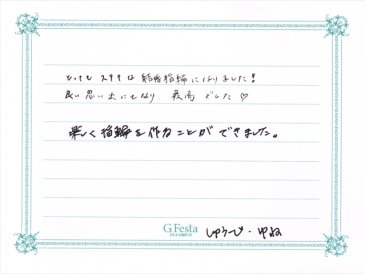 とっても ステキな 結婚指輪になりました!
良い思い出にもなり 最高でした♡
楽しく指輪を作ることができました。
G.Festa
しゅうじ・ゆね